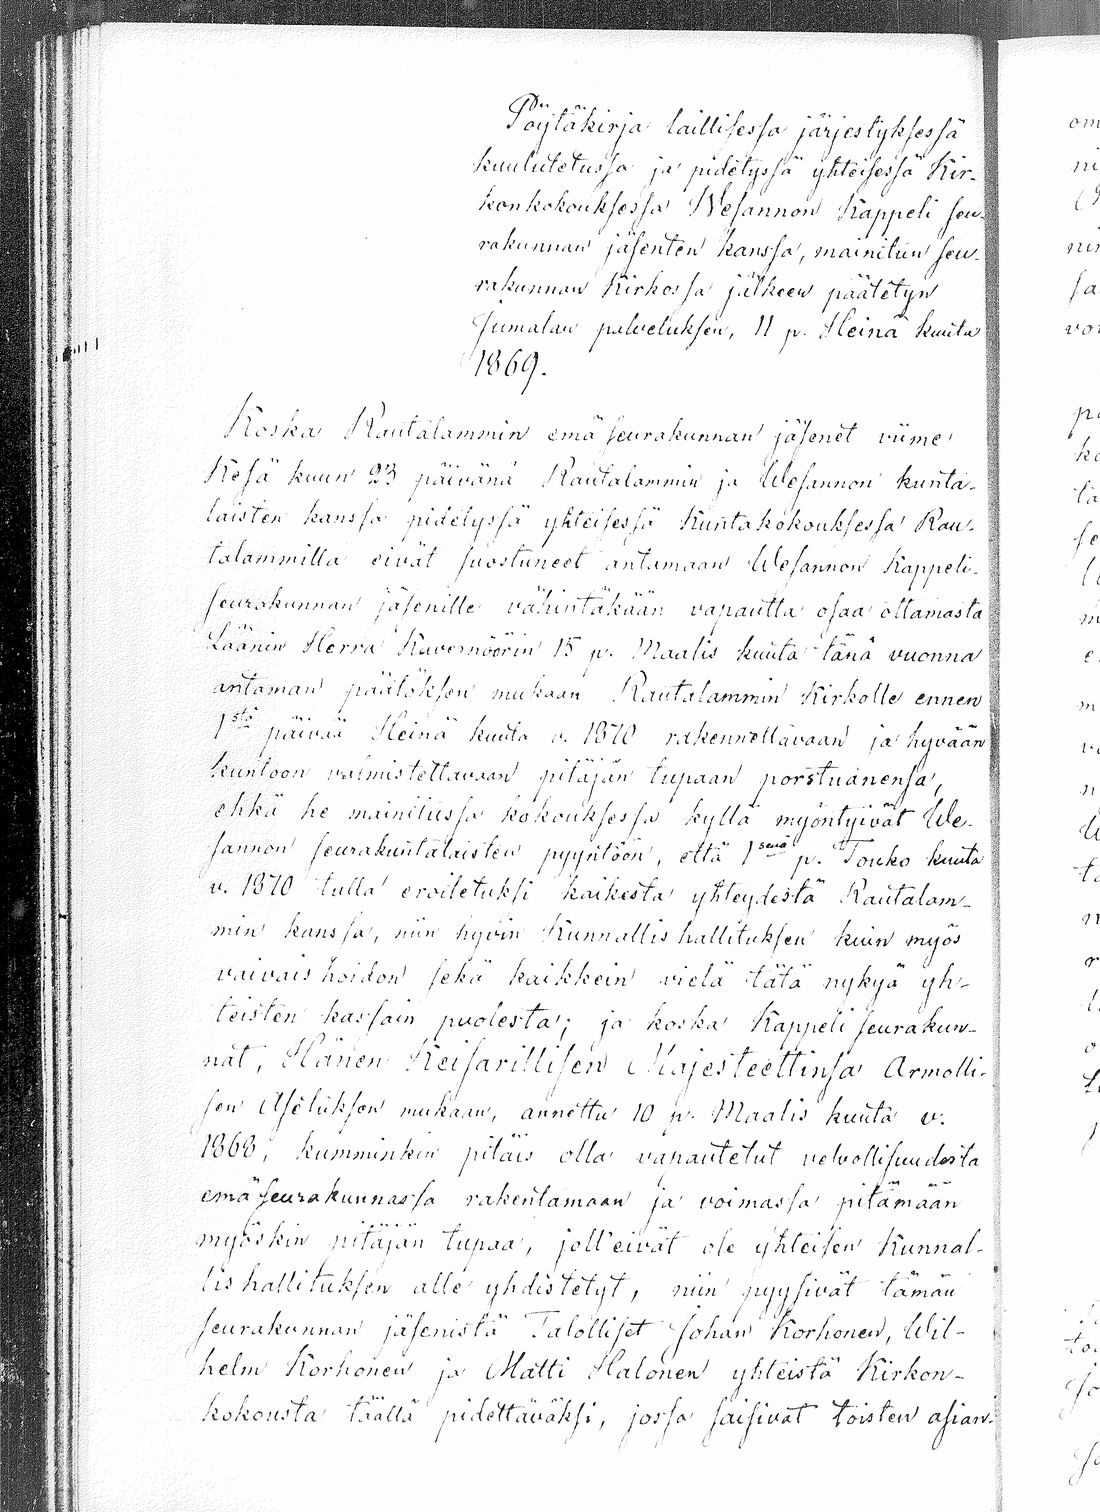 Pöytäkirja laillisessa järjestyksessä
kuulutetussa ja pidetyssä yhteisessä Kir-
konkokouksessa Wesannon Kappeli seu-
rakunnan jäsenten kanssa, mainitun seu-
rakunnan Kirkossa jälkeen päätetyn
Jumalan palveluksen, 11 p. Heinä kuuta
1869.
Koska Rautalammin emä seurakunnan jäsenet viime
Kesä kuun 23 päivänä Rautalammin ja Wesannon kunta-
laisten kanssa pidetyssä yhteisessä Kuntakokouksessa Rau-
talammilla eivät suostuneet antamaan Wesannon Kappeli-
seurakunnan jäsenille vähintäkään vapautta osaa ottamasta
Läänin Herra Kuvernöörin 15 p. Maalis kuuta tänä vuonna
antaman päätöksen mukaan Rautalammin Kirkolle ennen
1stä päivää Heinä kuuta v. 1870 rakennettavaan ja hyvään
kuntoon valmistettavaan pitäjän tupaan porstuanensa,
ehkä he mainitussa kokouksessa kyllä myöntyivät We-
sannon seurakuntalaisten pyyntöön, että 1senä p. Touko kuuta
v. 1870 tulla eroitetuksi kaikesta yhteydestä Rautalam-
min kanssa, niin hyvin Kunnallis hallituksen kuin myös
vaivais hoidon sekä kaikkein vielä tätä nykyä yh-
teisten kassain puolesta; ja koska Kappeli seurakun-
nat, Hänen Keisarillisen Majesteettinsa Armolli-
sen Asetuksen mukaan, annettu 10 p. Maalis kuuta v.
1868, kumminkin pitäis olla vapautetut velvollisuudesta
emä seurakunnassa rakentamaan ja voimassa pitämään
myöskin pitäjän tupaa, joll'eivät ole yhteisen Kunnal-
lis hallituksen alle yhdistetyt, niin pyysivät tämän
seurakunnan jäsenistä Talolliset Johan Korhonen, Wil-
helm Korhonen ja Matti Halonen yhteistä Kirkon-
kokousta täällä pidettäväksi, jossa saisivat toisten asian-